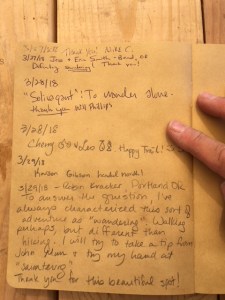 Thank you! Mike C.
3/27/18 Joe + Eric Smith - Bend, OR
Definitely Thank you!
3/28/18
"Solivagant": To wander alone.
thank you Will Phillips
3/28/18
Cheryl & Leo Happy Trails!
3/29/18
Gibson
3/29/18 - Robin Portland OR
To answer the question, I've
always characterized this sort of
adventure as "wandering". Walking
perhaps, but different than
hiking. I will try to take a tip from
John Muir & try my hand at
"sauntering".
Thank you for this beautiful spot!